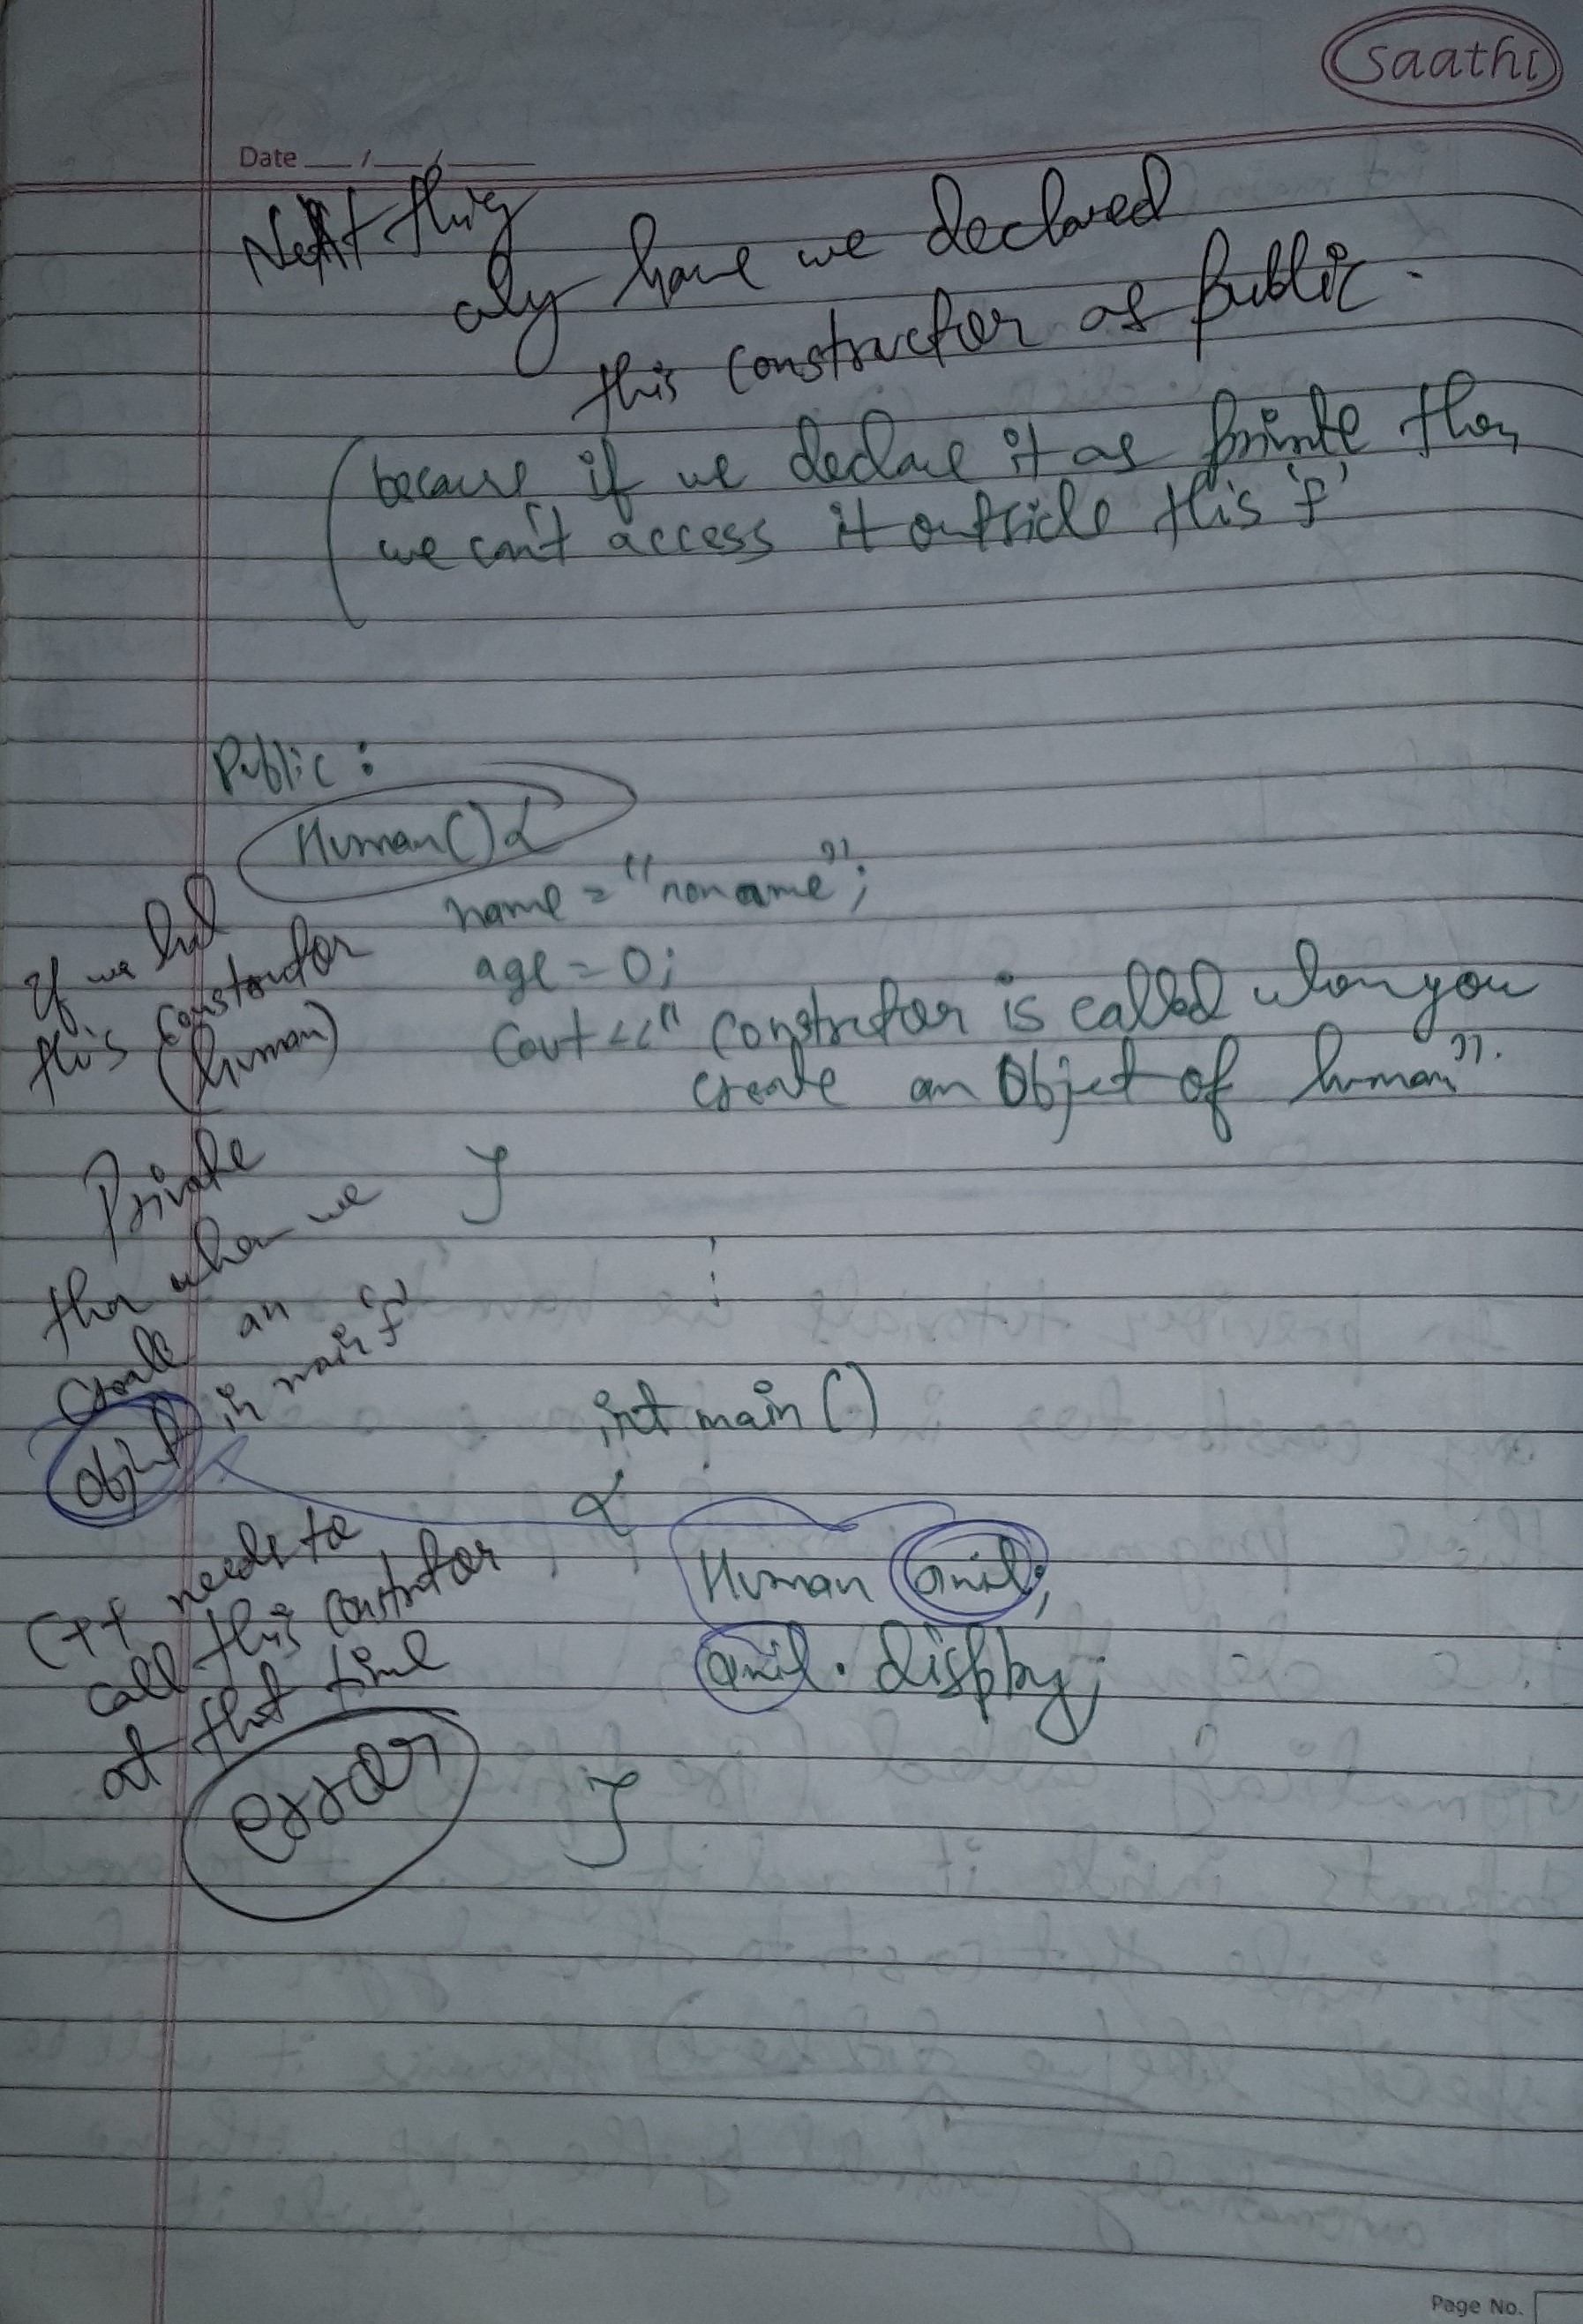 Saathi
Date ___/___/______
Next thing
why have we declared
this constructor as public.
(because if we declare it as private then
we can't access it outside this 'f'
Public:
Human(){
name = "noname";
age = 0;
cout << " Constructor is called when you
create an Object of human".
}
If we had
this constructor
(human)
Private
then when we
create an
object in main 'f'
C++ needs to
call this constructor
at that time
error
int main()
{
Human anil;
anil.display;
}
Page No.